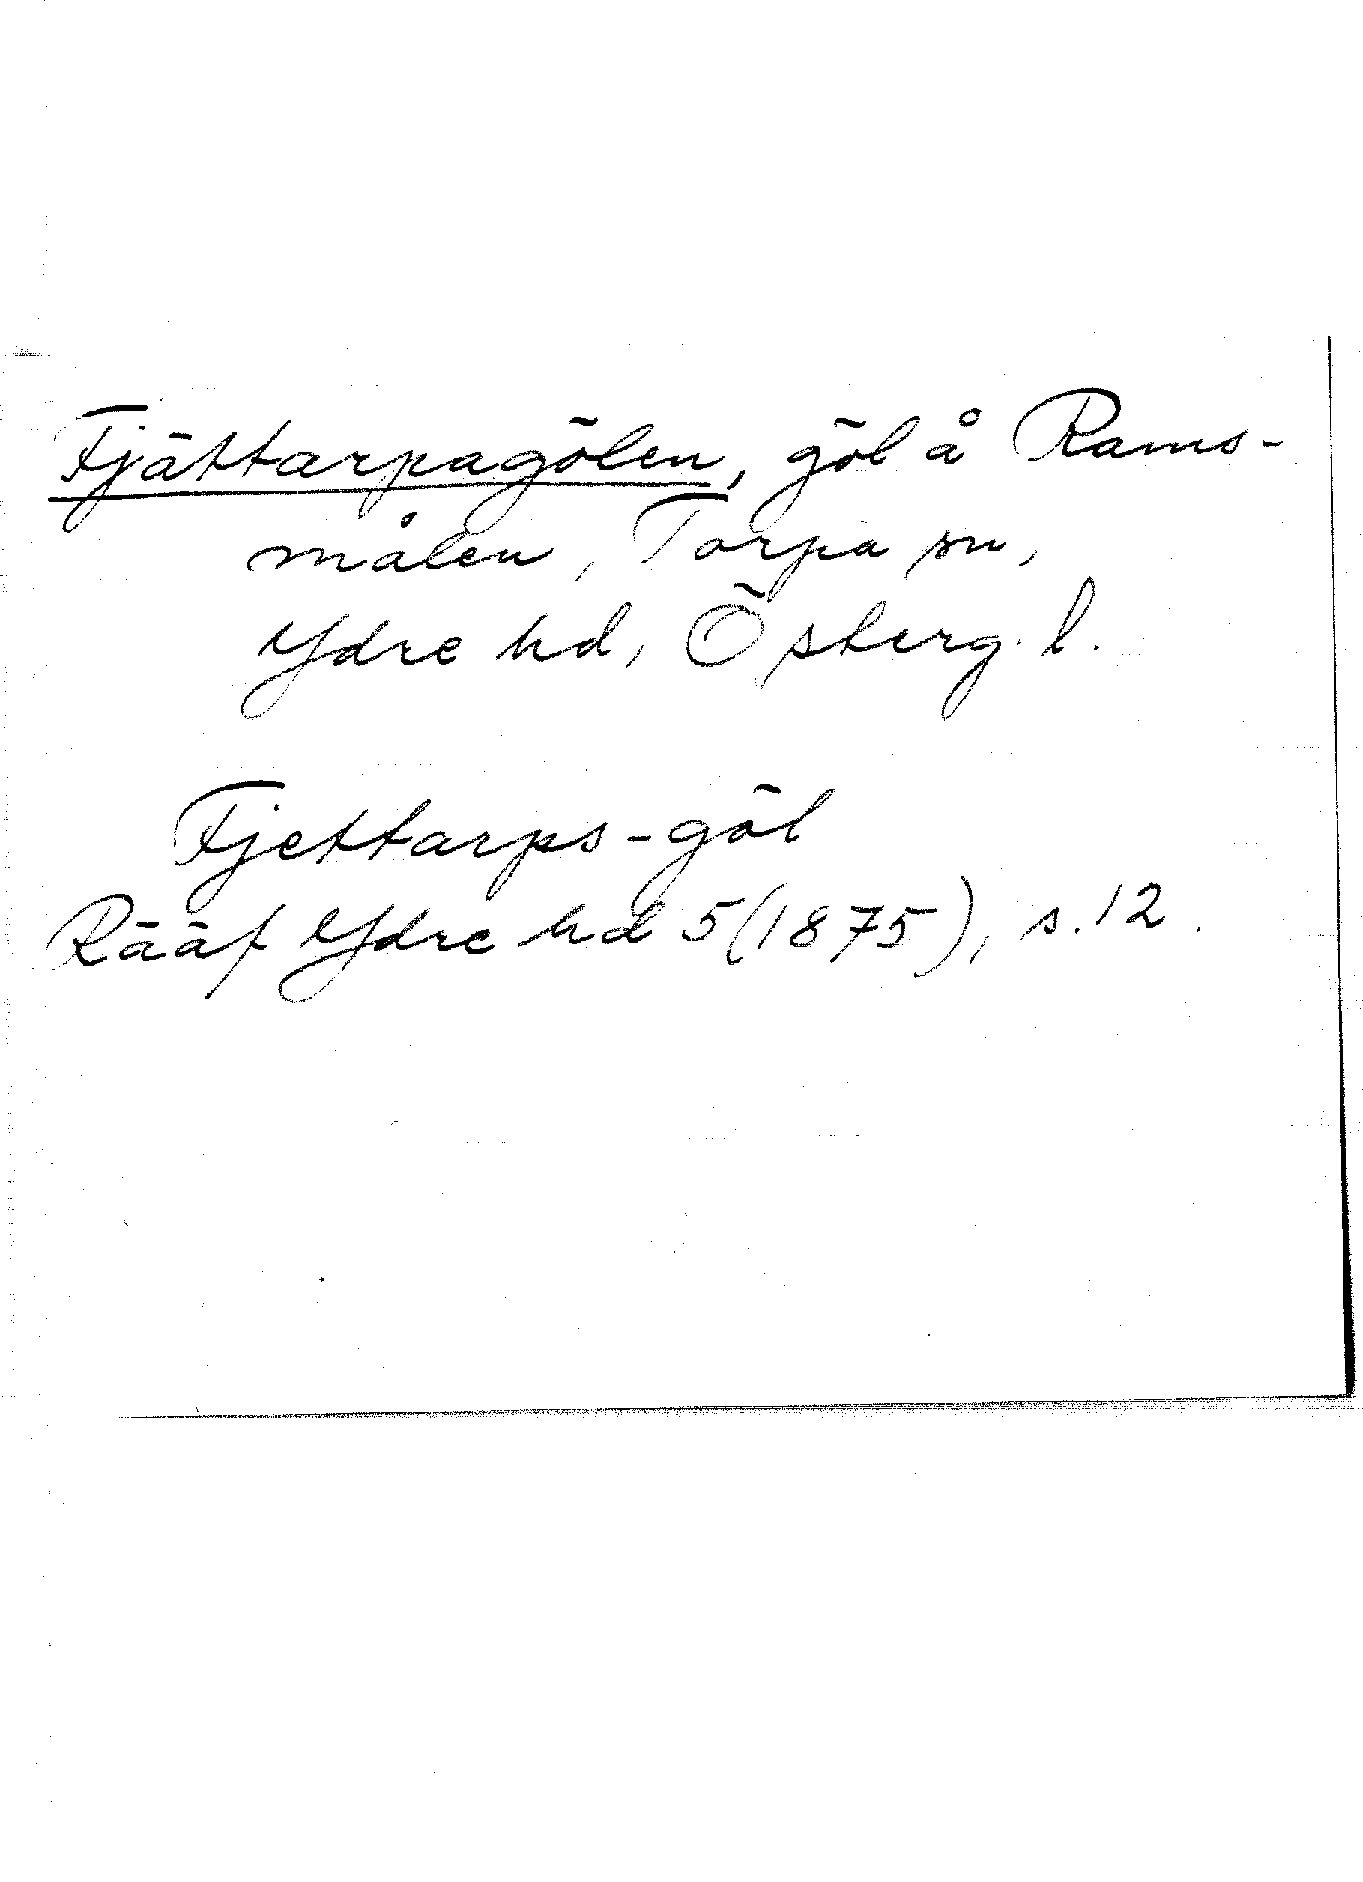 Fjättarpagölen, göl å Rams-
målen, Torpa sn,
Ydre hd, Östergl.
Fjettarps-göl
Rääf Ydre hd 5(1875), s.12.